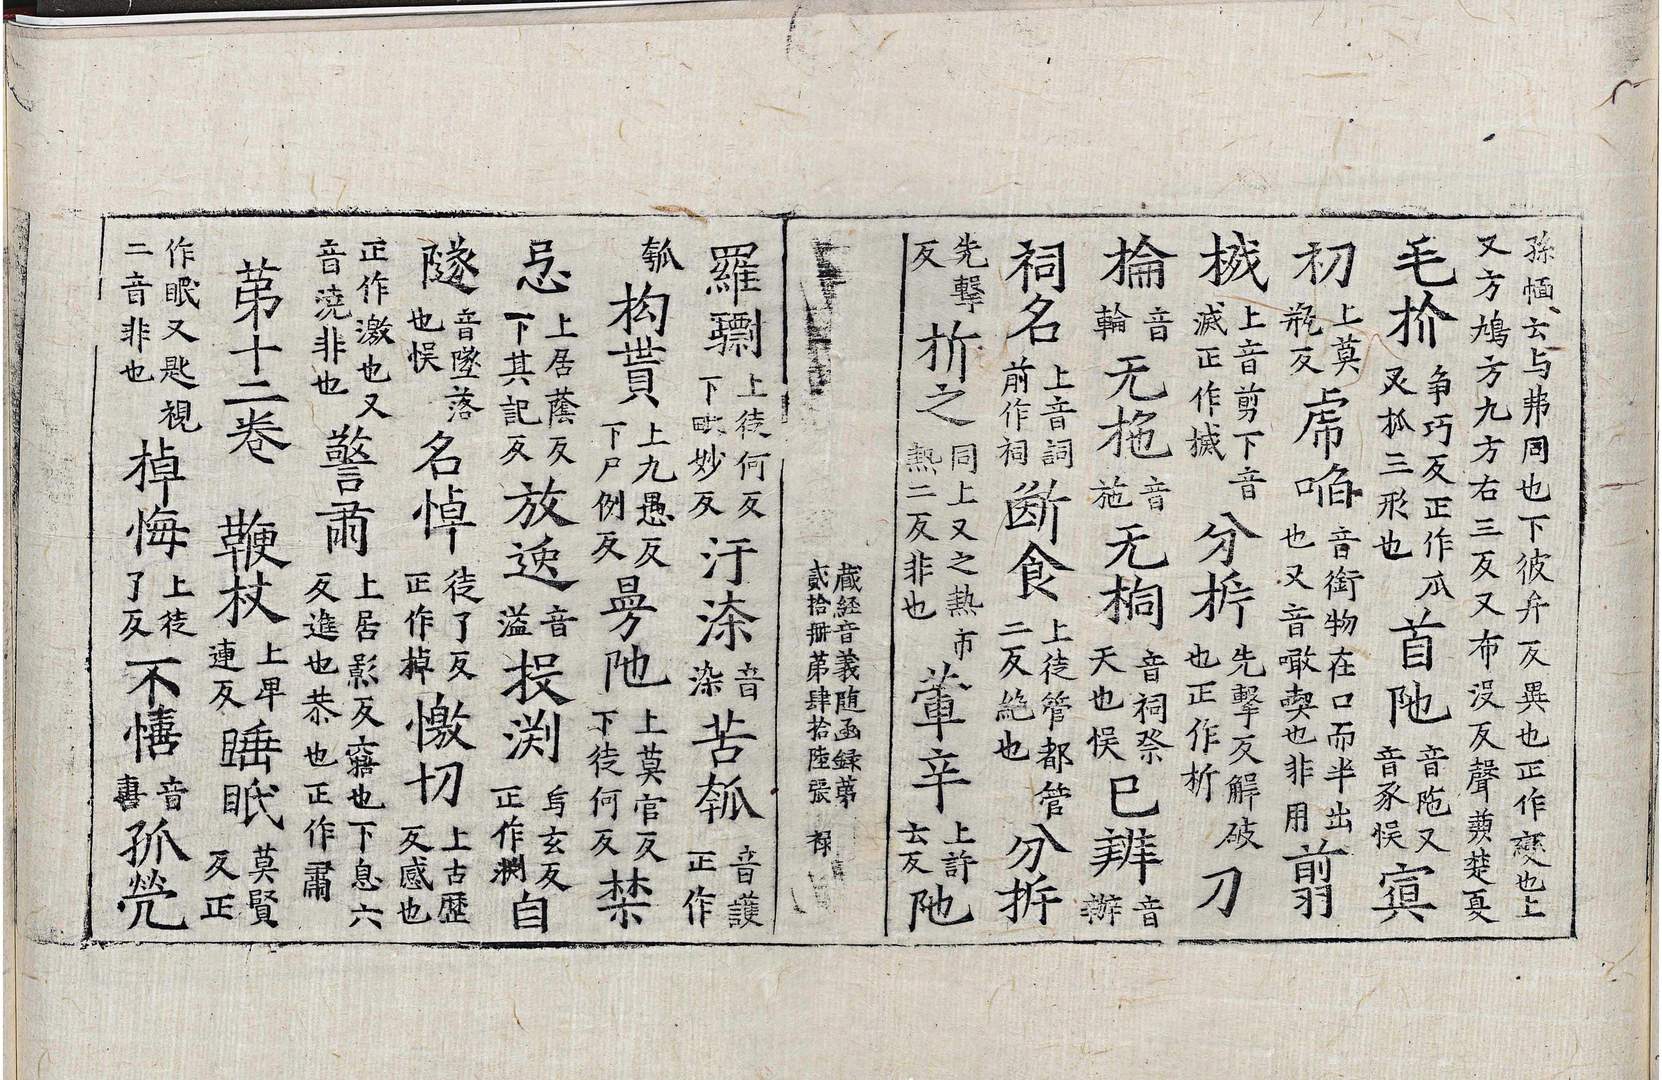 孫愐云与弗同也下彼弁反異也正作變也上
又方鳩方九方右三反又布沒反聲類楚夏
毛扴 爭巧反正作爪又抓三形也 首阤 音陁又音豕悮 寞
初 上莫瓶反 虍啗 音銜物在口而半出也又音噉喫也非用 翦
拭 上音剪下音滅正作搣 分㭊 先擊反解破也正作析 刀
掄 音輪 无拖 音施 无桐 音祠祭天也悮 巳辨 音辦
祠名 上音詞前作祠 断食 上徒管都管二反絶也 分㭊
先擊反 㭊之 同上又之熱市熱二反非也 葷辛 上許云反 阤
藏経音義随函録苐
貳拾册苐肆拾陸張 禄
羅驃 上徒何反下毗妙反 汙㳩 音染 苦瓠 音護正作
瓠 构貰 上九愚反下尸例反 㬅阤 上莫官反下徒何反 禁
忌 上居蔭反下其記反 放逸 音溢 投渕 烏玄反正作淵 自
隧 音墜落也悮 名悼 徒了反正作掉 憿切 上古歴反感也
正作激也又音澆非也 警肅 上居影反寤也下息六反進也恭也正作肅
苐十二卷 鞭杖 上卑連反 睡眠 莫賢反正
作眠又匙視二音非也 掉悔 上徒了反 不憘 音喜 孤㷀